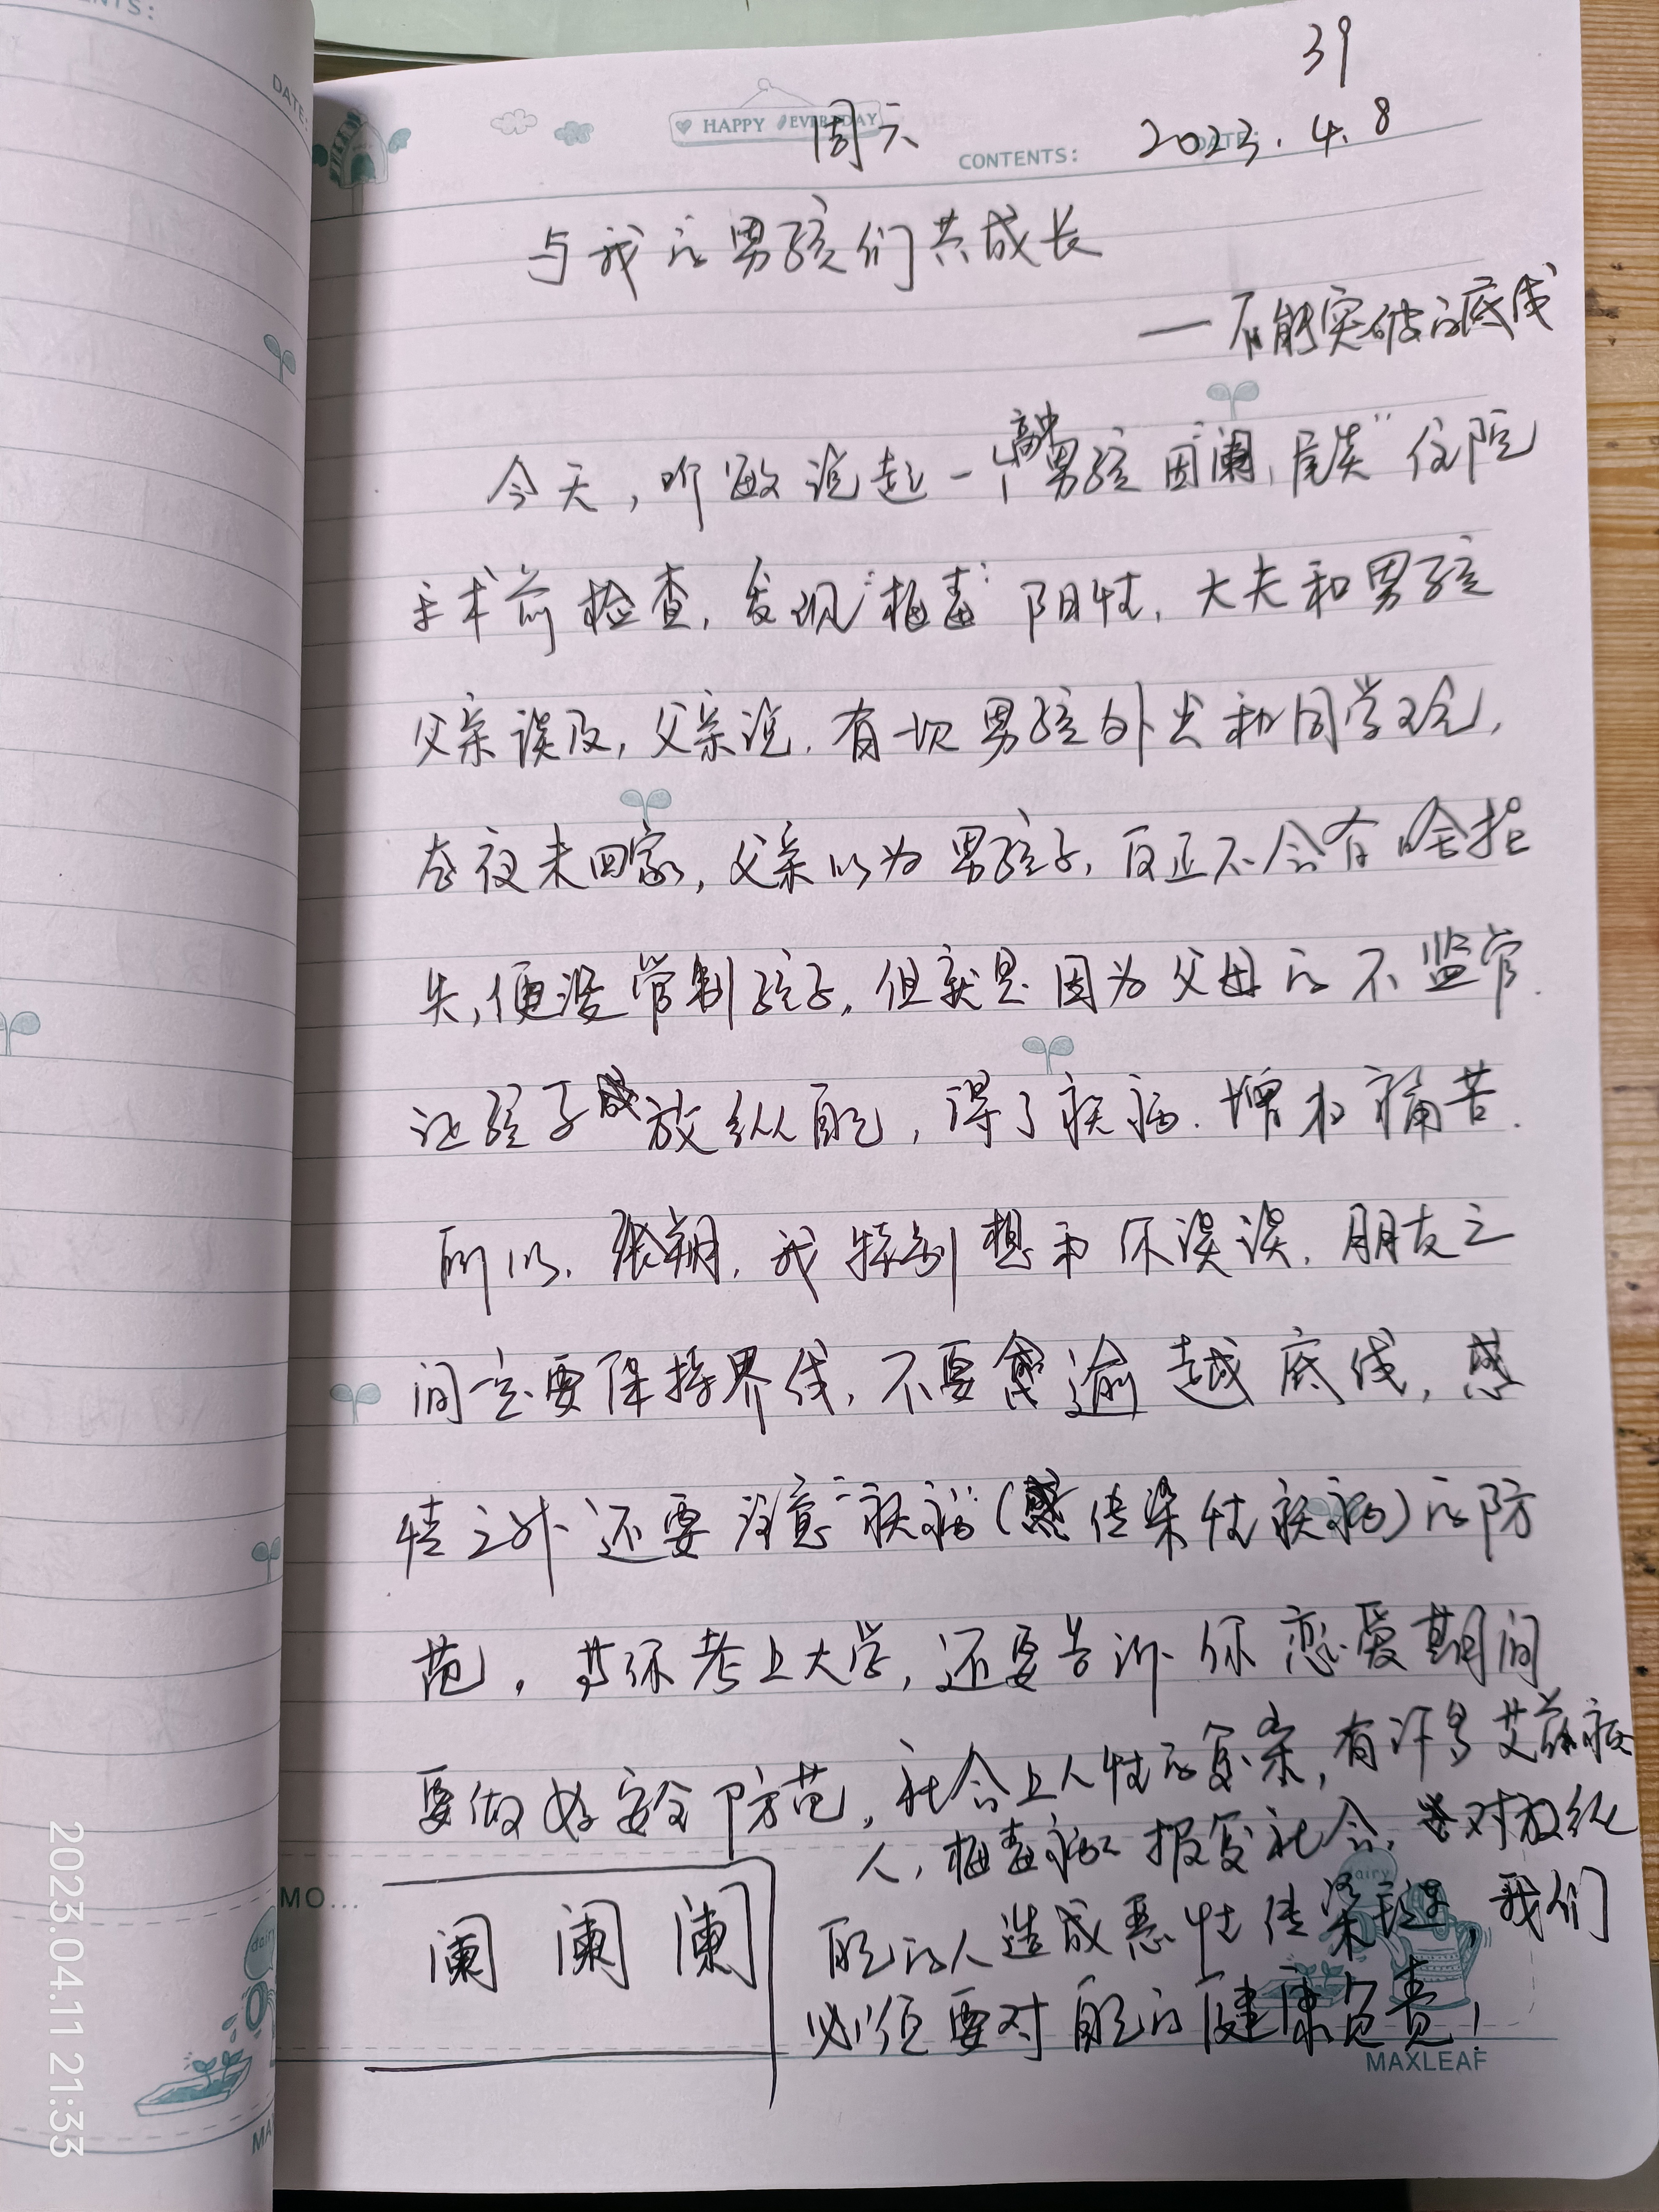 39
HAPPY EVERYDAY
周六
CONTENTS:
2023.4.8
与我的男孩们共成长
—不能突破的底线
今天,听敏说起一个高中男孩因"阑尾炎"住院
手术前检查,发现"梅毒"阳性,大夫和男孩
父亲谈及,父亲说,有一次男孩外出和同学玩,
在夜未回家,父亲以为男孩子,反正不会有啥损
失,便没管制孩子,但就是因为父母的不监管.
让孩子放纵自己,得了疾病.增加痛苦.
所以,张朔,我特别想和你谈谈,朋友之
间一定要保持界线,不要逾越底线,感
情之外还要注意"疾病"(传染性疾病)的防
范,若你考上大学,还要告诉你恋爱期间
要做好安全防范,社会上人性的复杂,有许多艾滋病
人,梅毒病人报复社会,对放纵
自己的人造成恶性传染,我们
必须要对自己的健康负责!
阑 阑 阑
MAXLEAF
DATE:
MO...
2023.04.11 21:33